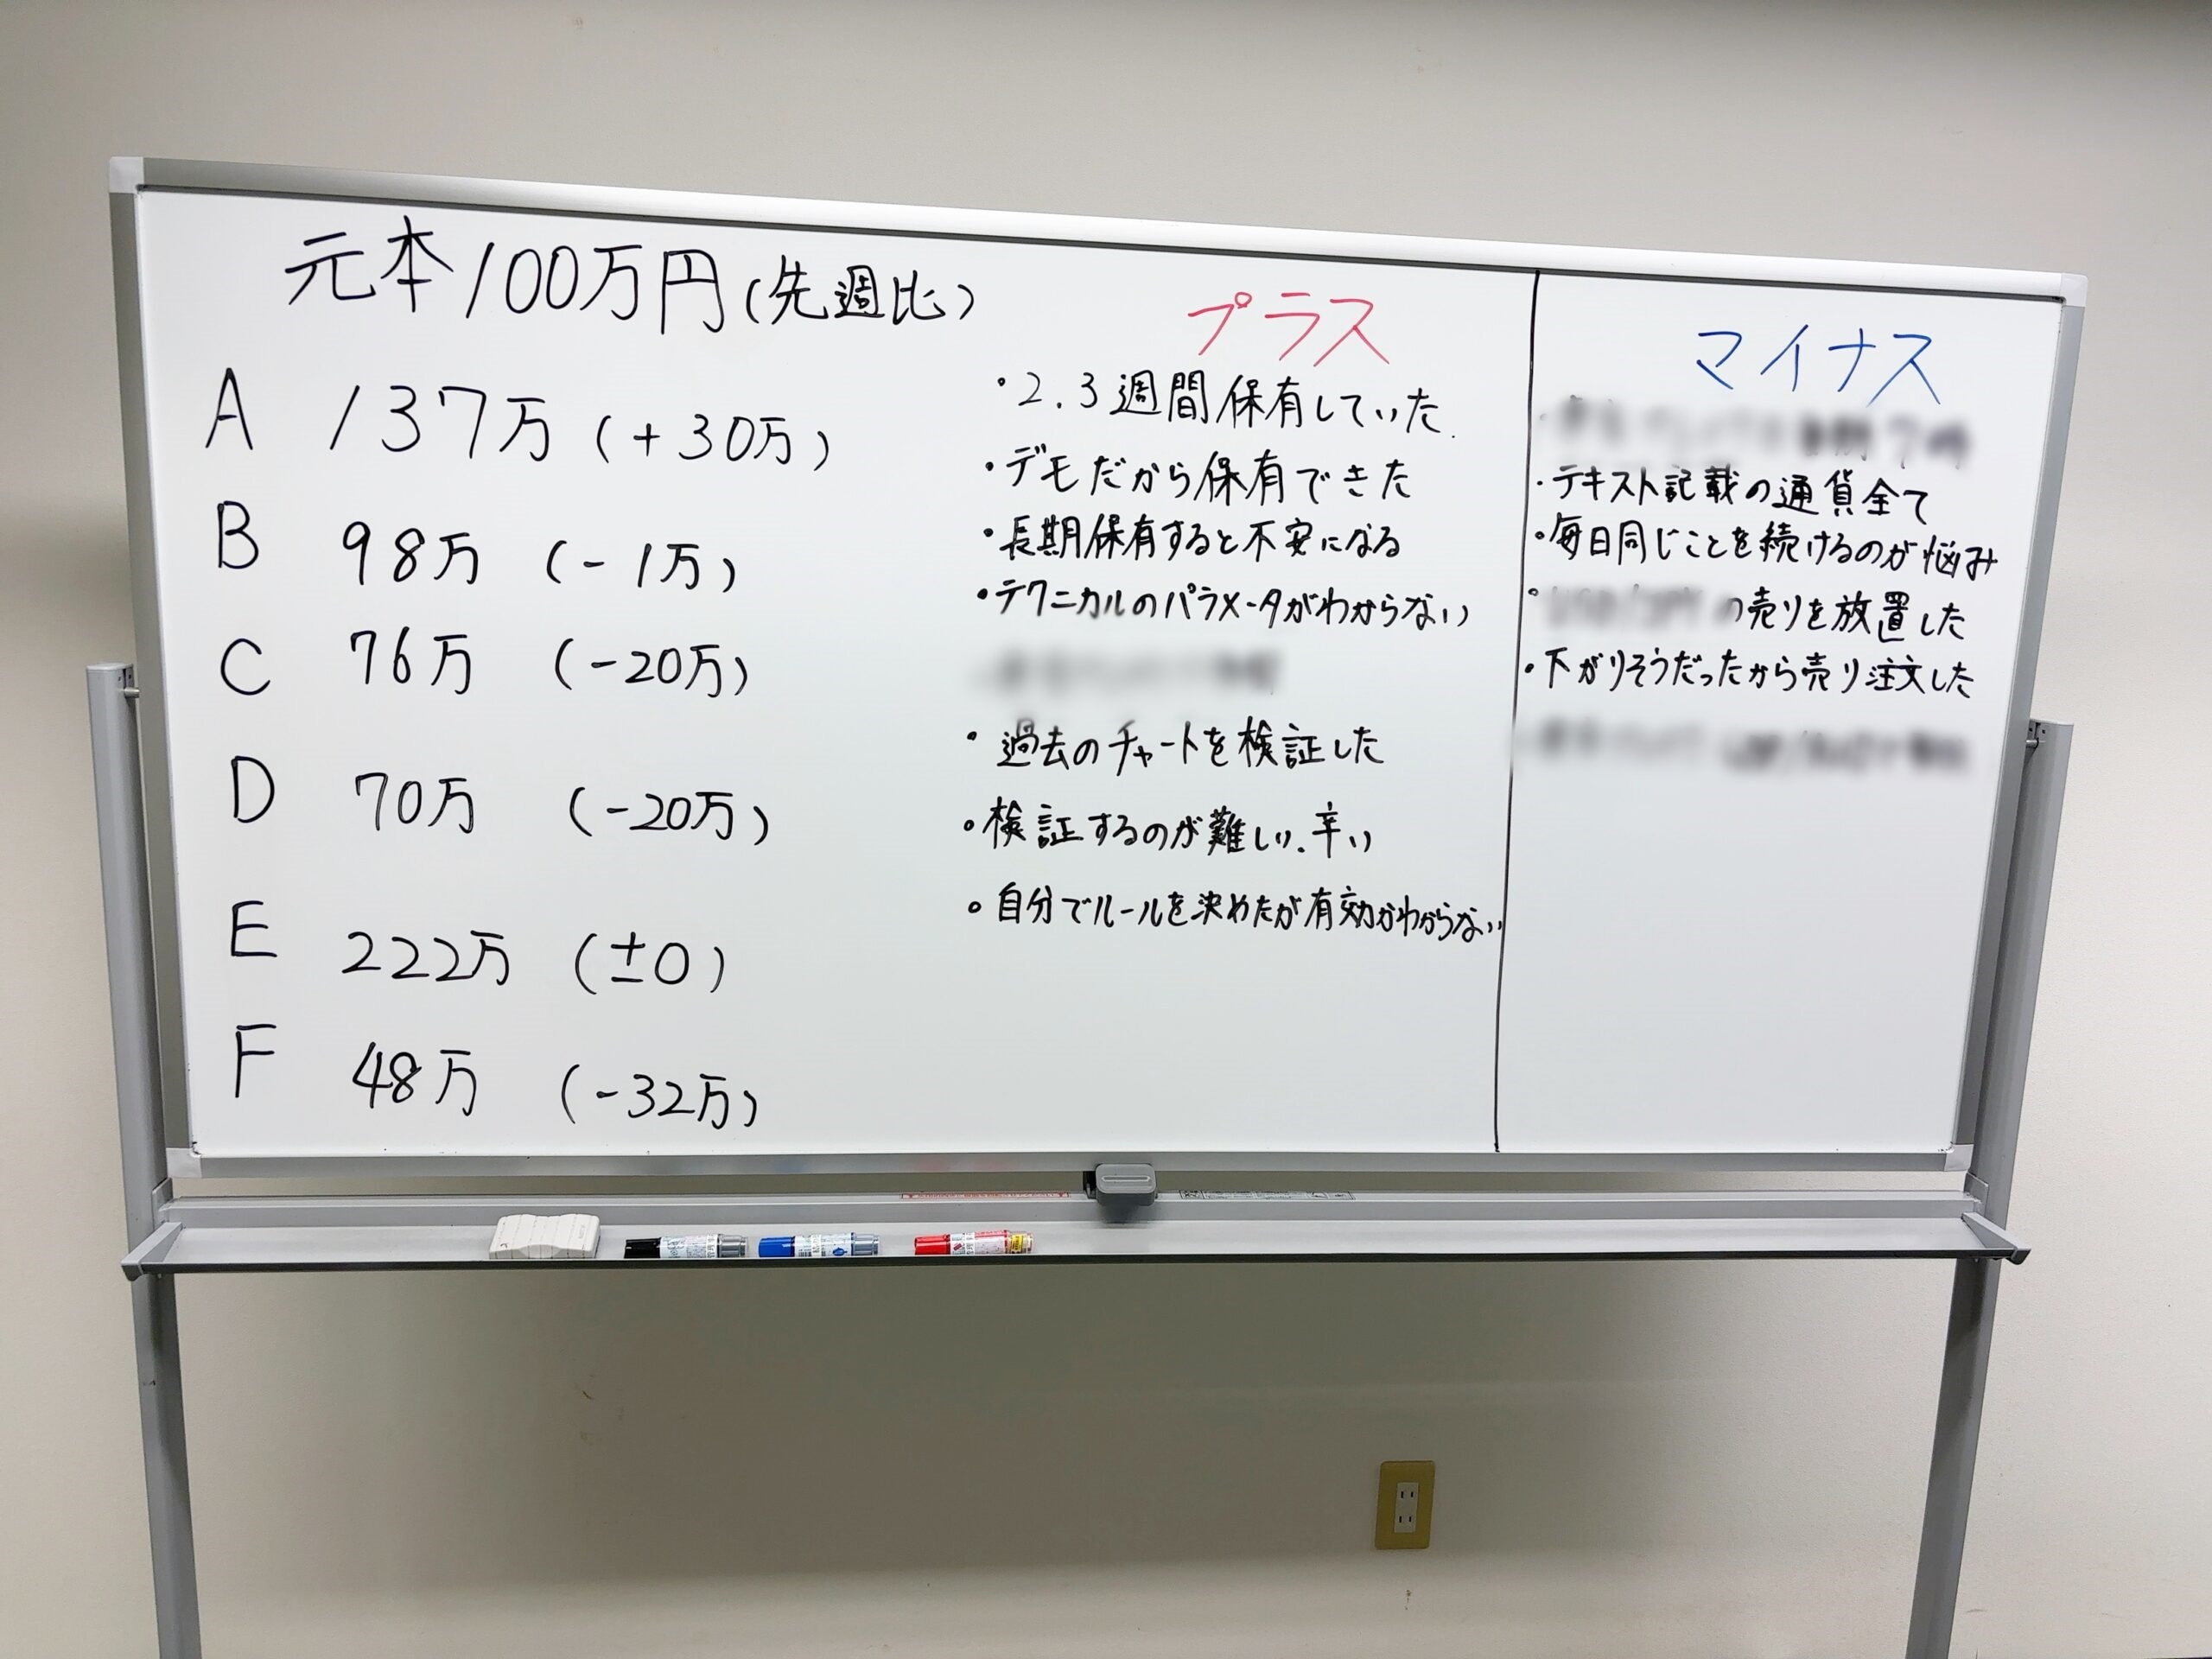 元本100万円(先週比)
A 137万 (+30万)
B 98万 (-1万)
C 76万 (-20万)
D 70万 (-20万)
E 222万 (±0)
F 48万 (-32万)
プラス
・2.3週間保有していた.
・デモだから保有できた
・長期保有すると不安になる
・テクニカルのパラメータがわからない
・過去のチャートを検証した
・検証するのが難しい.辛い
・自分でルールを決めたが有効かわからない
マイナス
・テキスト記載の通貨全て
・毎日同じことを続けるのが悩み
の売りを放置した
・下がりそうだったから売り注文した